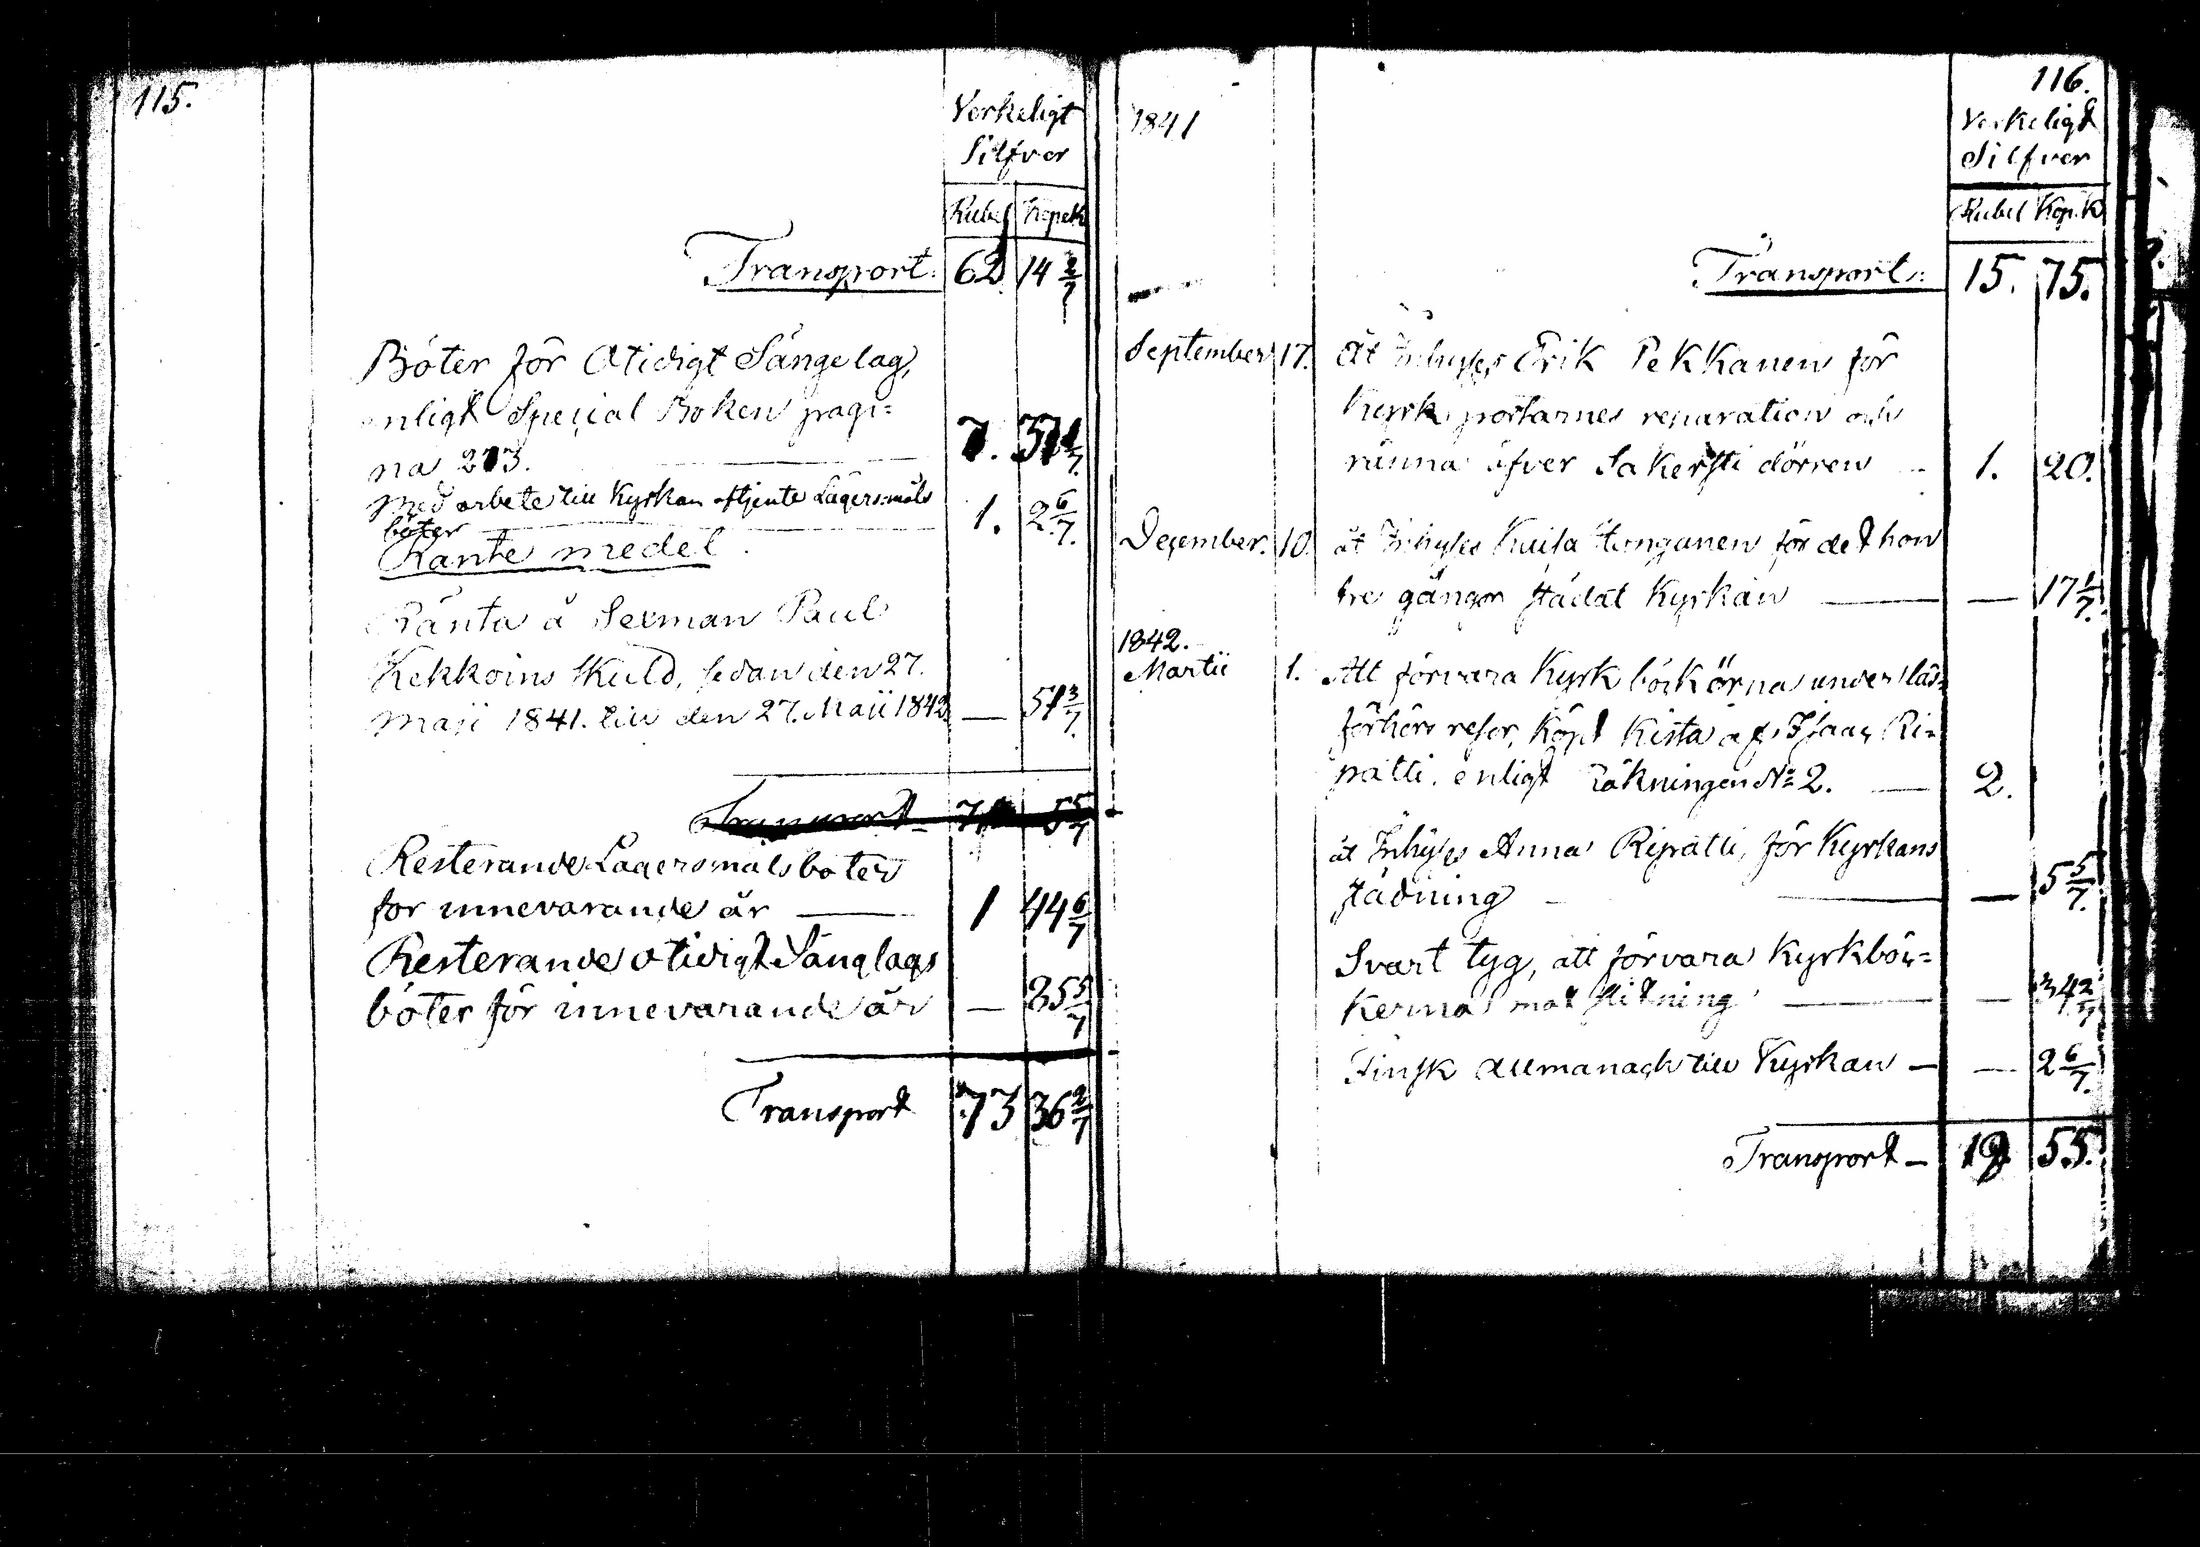 115.
Verkeligt
Silfver
Rubel Kopek
Transport. 62 14 2/7
Böter för Otidigt Sängelag,
enligt Special Boken pagi=
na 213. 7. 37 1/7
Med arbete till Kyrkan aftjente Lägersmåls
böter 1. 2 6/7.
Ränte medel.
Ränta å Sexman Paul
Kekkoins skuld, sedan den 27.
Maji 1841. till den 27. Maii 1842 — 51 3/7.
Transport 5 5/7
Resterande Lägersmåls böter
för innevarande år — 1 44 6/7
Resterande otidigt Sänglags
böter för innevarande år — 85 5/7
Transport 73 36 2/7
116.
1841
Verkeligt
Silfver
Rubel Kop.k
Transport: 15. 75.
September 17. Åt Inhyses Erik Pekkanen för
Kyrk portarnes reparation och
ränna öfver Sakersti dörren — 1. 20.
December. 10. åt Inhyses Kuisa Hanganen för det hon
tre gånger städat Kyrkan — — 17 1/7.
1842.
Martii 1. Att förvara Kyrk böckörna under läs=
förhörs resor, köpt Kista af Isaac Ri=
patti. enligt Räkningen No 2. — 2.
åt Inhyses Anna Ripatti, för Kyrkans
städning — — 5 5/7.
Svart tyg, att förvara Kyrkböc=
kerna mot slitning — — 34 2/7
Finsk Allmanach till Kyrkan — — 2 6/7.
Transport — 19 55.